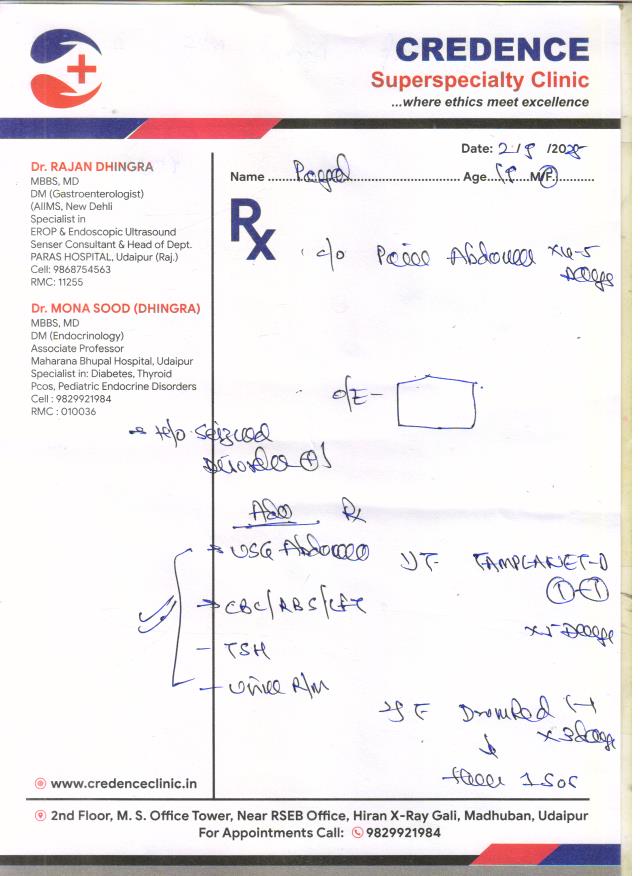 CREDENCE
Superspecialty Clinic
...where ethics meet excellence
Date: 2/9/2025
Name Age M/F.
Rx
Dr. RAJAN DHINGRA
MBBS, MD
DM (Gastroenterologist)
(AIIMS, New Dehli
Specialist in
EROP & Endoscopic Ultrasound
Senser Consultant & Head of Dept.
PARAS HOSPITAL, Udaipur (Raj.)
Cell: 9868754563
RMC: 11255
c/o Pain Abdomen x 4-5
days
Dr. MONA SOOD (DHINGRA)
MBBS, MD
DM (Endocrinology)
Associate Professor
Maharana Bhupal Hospital, Udaipur
Specialist in: Diabetes, Thyroid
Pcos, Pediatric Endocrine Disorders
Cell : 9829921984
RMC : 010036
O/E -
H/o Seizure
Disorder (+)
Adv Rx
→ USG Abdomen
→ CBC/RBS/LFT
- TSH
- Urine R/M
1) T.
1-1
x 5 Days
2) T.
x 3 days
↓
then 1 SOS
www.credenceclinic.in
2nd Floor, M. S. Office Tower, Near RSEB Office, Hiran X-Ray Gali, Madhuban, Udaipur
For Appointments Call: 9829921984